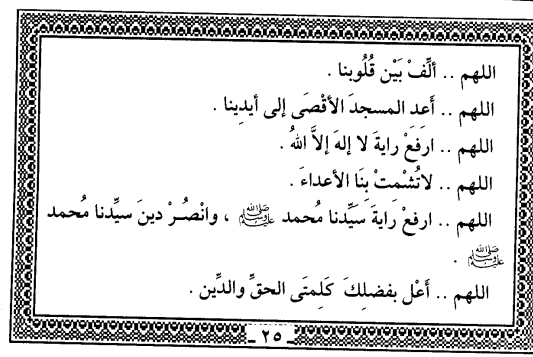 اللهم .. ألِّفْ بَيْن قُلُوبنا .
اللهم .. أَعد المسجدَ الأقْصَى إلى أيدِينا .
اللهم .. ارفَعْ رايةَ لا إلهَ إلاَّ اللهُ .
اللهم .. لاتُشْمِتْ بِنَا الأعداءَ .
اللهم .. ارفعْ رايةَ سَيِّدنا مُحمد ﷺ ، وانْصُـرْ دينَ سيِّدنا مُحمد
ﷺ .
اللهم .. أَعْل بفضلِكَ كَلِمتَى الحقِّ والدِّين .
ـ ٢٥ ـ